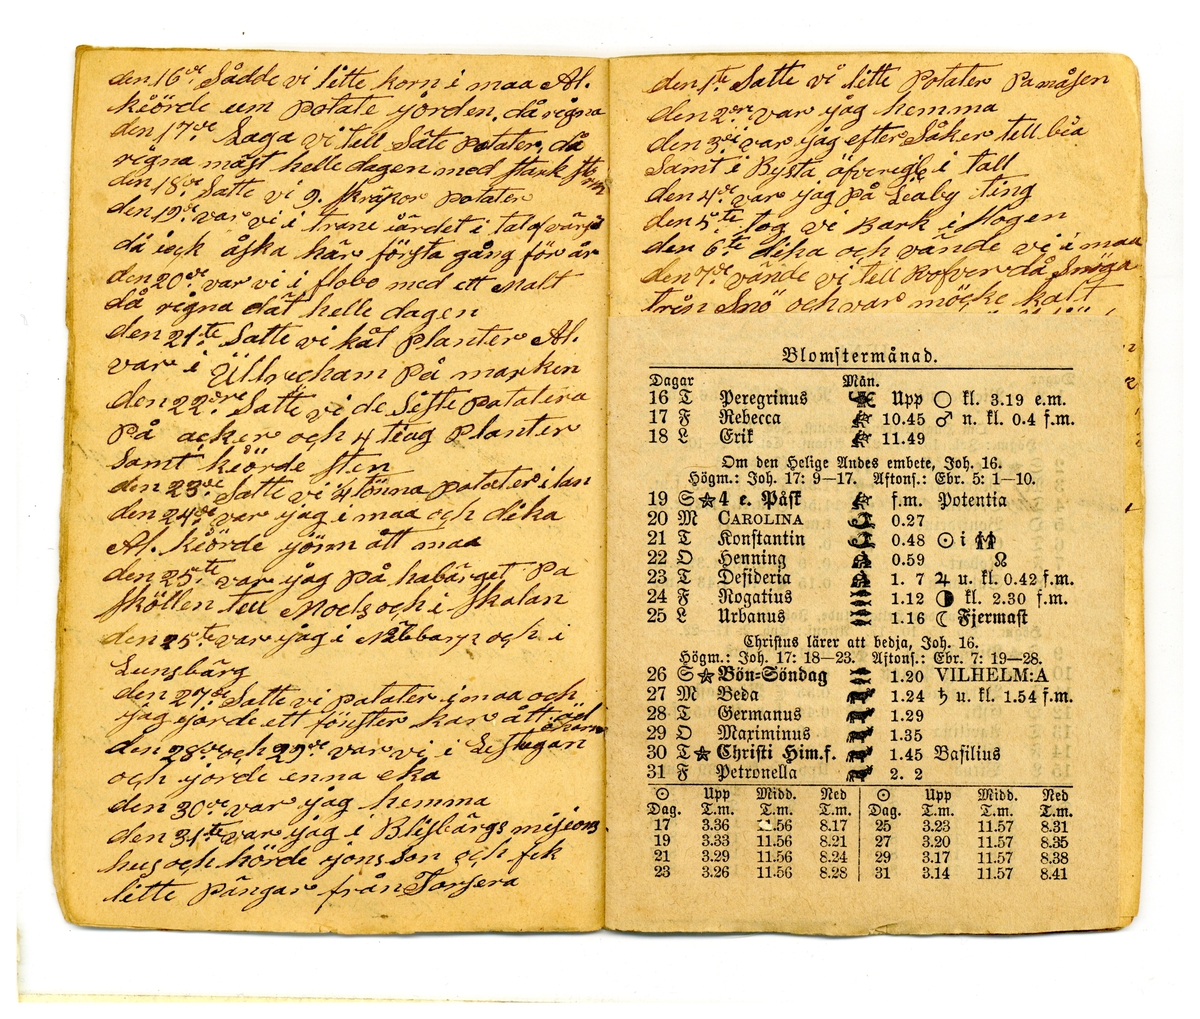 den 16de Sådde vi litte korn i maa Al.
kiörde um potate jorden. då rigna
den 17de Laga vi tell Säte potater, då
rigna mäst helle dagen med stark storm
den 18de Satte vi 9. skräpor potater
den 19de var vi i trane iärdet i talofvärje
då iеck åska här första gång för år
den 20de var vi i flobo med ett malt
då rigna dät helle dagen
den 21te Satte vi kåt planter Al.
var i Üllrecham på marken
den 22dre Satte vi de Siste potatera
På acker och 4 teag planter
Samt kiörde sten
den 23de Satte vi 4 tönna potater i lan
den 24de var jag i maa och dika
Al. kiörde jönn ått maa
den 25te var jag på habärget på
sköllen tell Moels och i skalan
den 25te var jag i och i
Lunsbärg
den 27de Satte vi potater i maa och
jag jorde ett förster kar ått
den 28de och 29de var vi i Lestugan
och jorde enna eka
den 30de var jag hemma
den 31te var jag i Blisbärgs misions
hus och hörde jonsson och fek
litte pängar från Torsera
den 1te Satte vi litte Potater Pa måsen
den 2er var jag hemma
den 3ei var jag efter Säker tell bea
Samt i Bysta öfverige i tall
den 4de var jag på Leaby ting
den 5te tog vi Bark i skogen
den 6te dika och vände vi i maa
den 7de vände vi tell Rofver då Snöga
trin Snö och var möcke kalt
Blomstermånad.
Dagar Mån.
16 T Peregrinus Upp ○ kl. 3.19 e.m.
17 F Rebecca 10.45 ♂ n. kl. 0.4 f.m.
18 L Erik 11.49
Om den Helige Andes embete, Joh. 16.
Högm.: Joh. 17: 9—17. Aftons.: Ebr. 5: 1—10.
19 S ☆ 4 e. Påsk f.m. Potentia
20 M CAROLINA 0.27
21 T Konstantin 0.48 ☉ i ♊
22 O Henning 0.59 ☊
23 T Desideria 1. 7 ♃ u. kl. 0.42 f.m.
24 F Rogatius 1.12 ◑ kl. 2.30 f.m.
25 L Urbanus 1.16 ☾ Fjermast
Christus lärer att bedja, Joh. 16.
Högm.: Joh. 17: 18—23. Aftons.: Ebr. 7: 19—28.
26 S ☆ Bön-Söndag 1.20 VILHELM:A
27 M Beda 1.24 ♄ u. kl. 1.54 f.m.
28 T Germanus 1.29
29 O Maximinus 1.35
30 T ☆ Christi Him.f. 1.45 Basilius
31 F Petronella 2. 2
☉ Upp Midd. Ned ☉ Upp Midd. Ned
Dag. T.m. T.m. T.m. Dag. T.m. T.m. T.m.
17 3.36 11.56 8.17 25 3.23 11.57 8.31
19 3.33 11.56 8.21 27 3.20 11.57 8.35
21 3.29 11.56 8.24 29 3.17 11.57 8.38
23 3.26 11.56 8.28 31 3.14 11.57 8.41